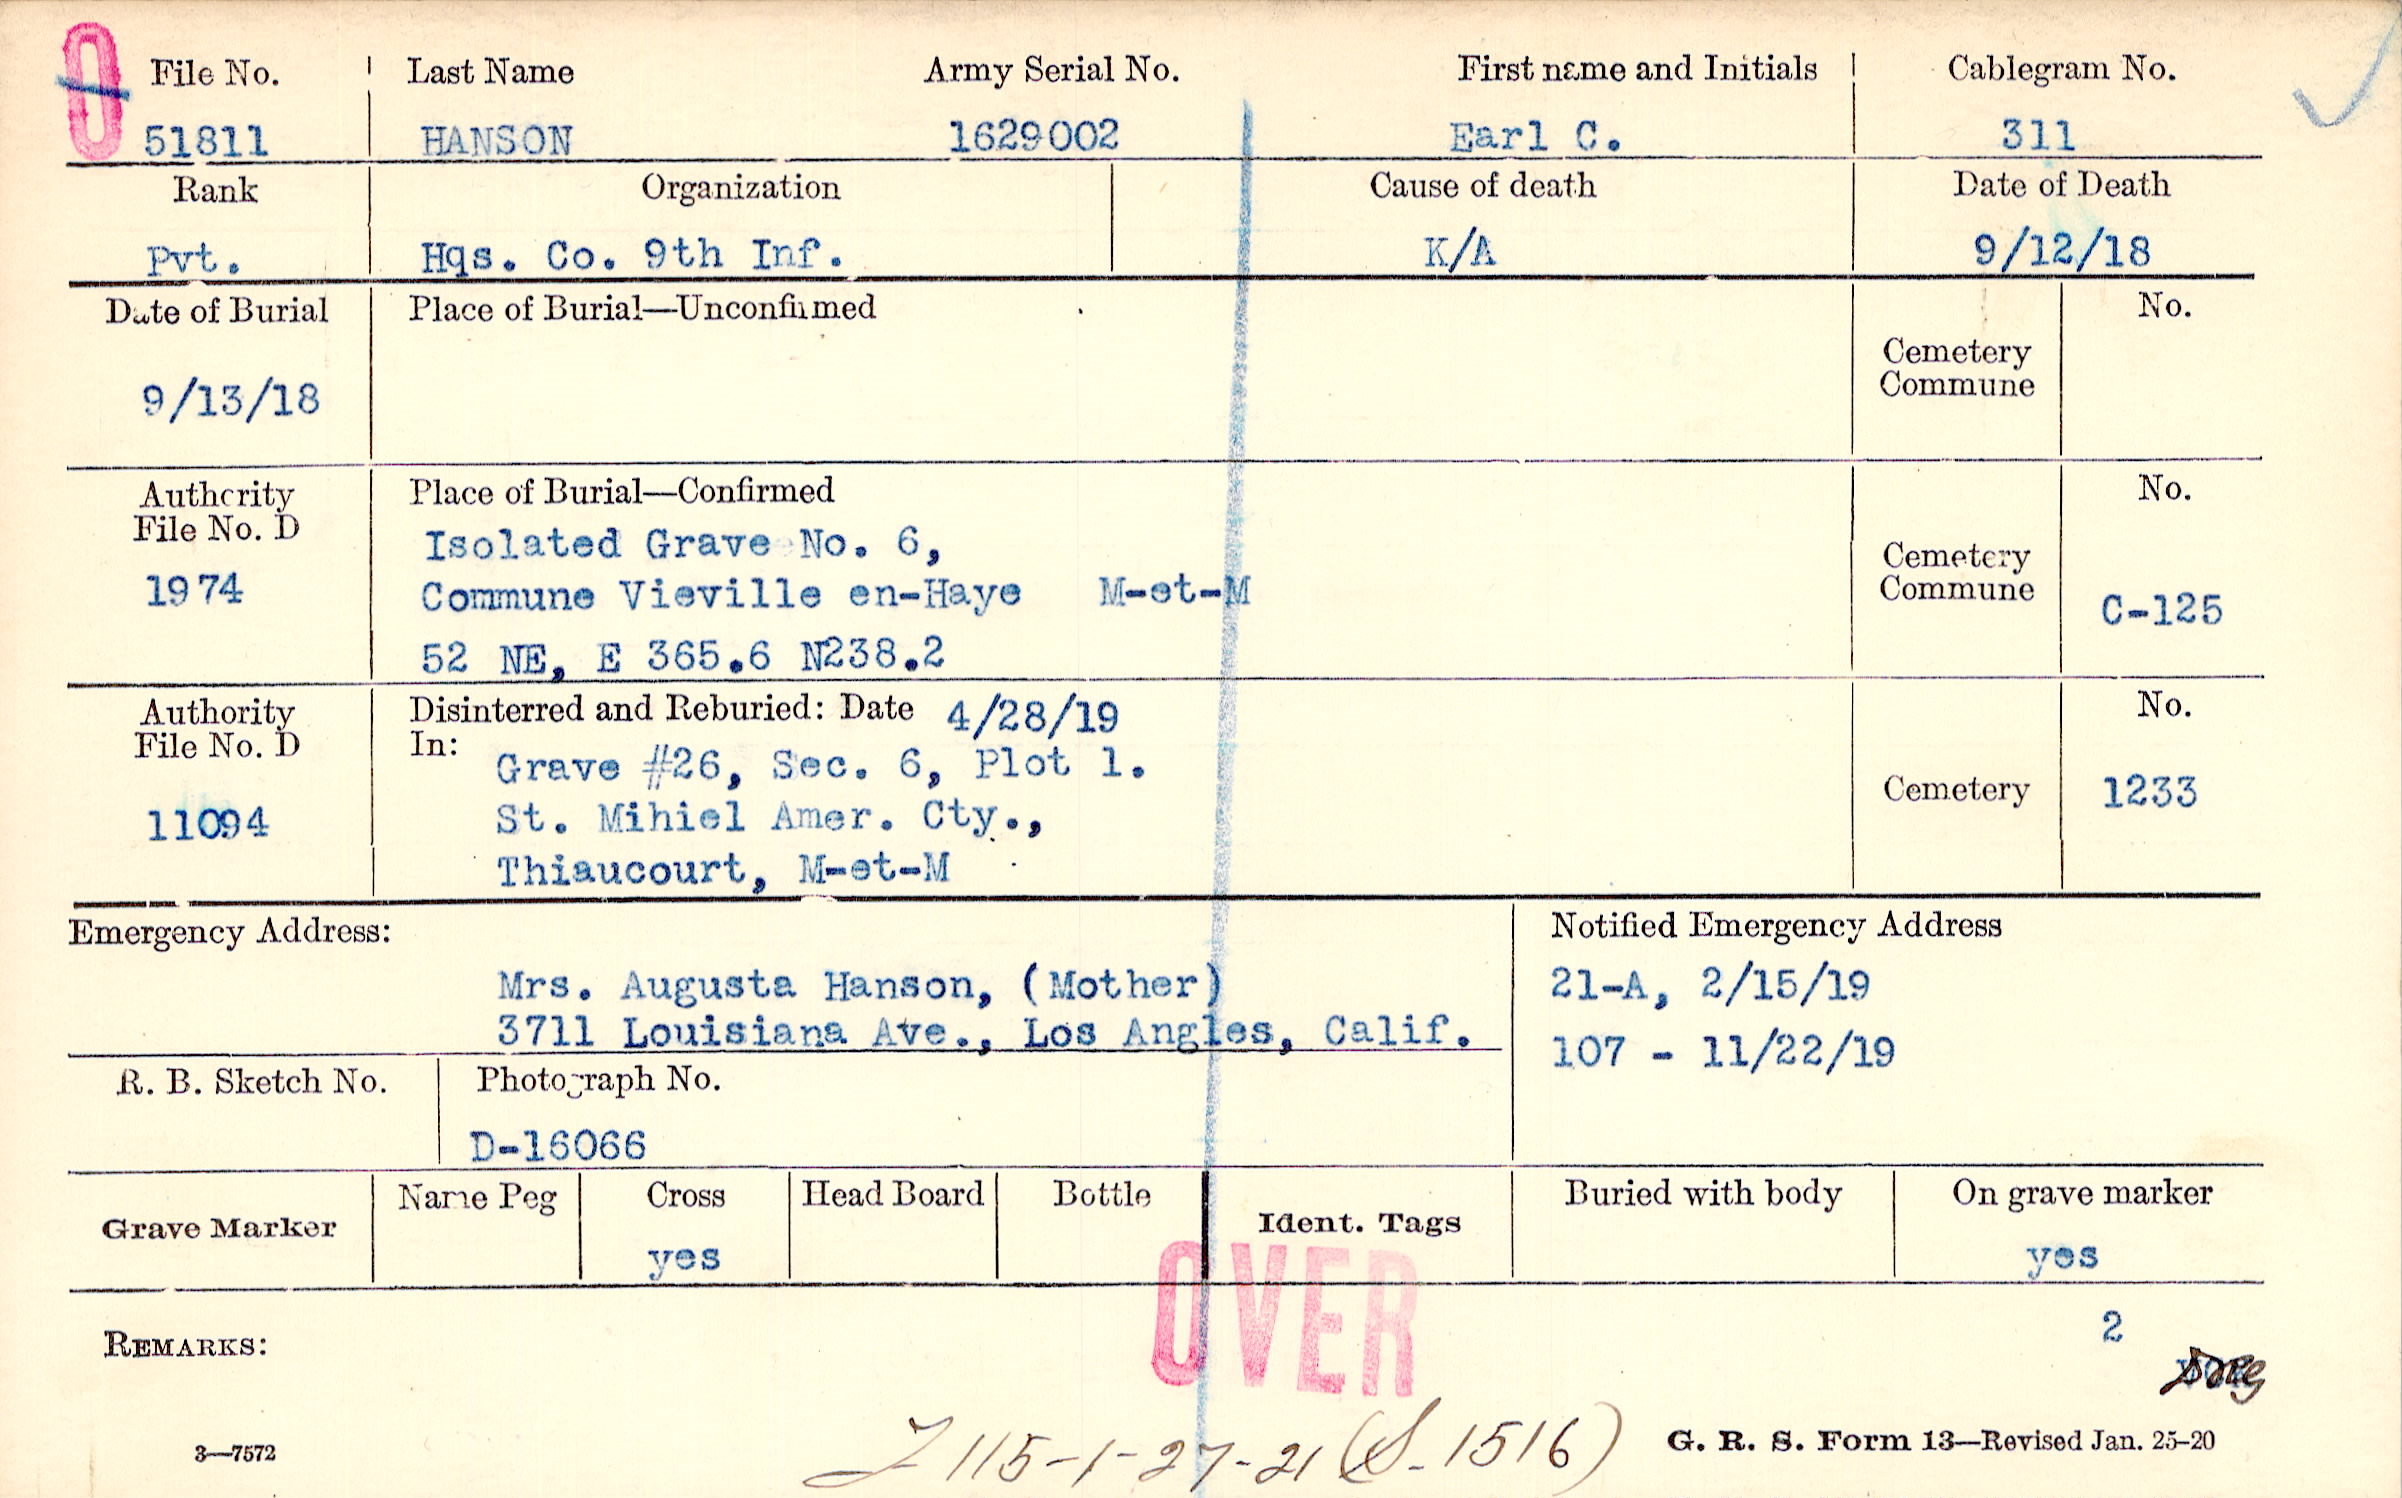 O
File No. Last Name Army Serial No. First name and Initials Cablegram No.
51811 HANSON 1629002 Earl C. 311
Rank Organization Cause of death Date of Death
Pvt. Hqs. Co. 9th Inf. K/A 9/12/18
Date of Burial Place of Burial—Unconfirmed No.
Cemetery
Commune
9/13/18
Authority Place of Burial—Confirmed No.
File No. D
Isolated Grave No. 6,
Cemetery
1974 Commune Vieville en-Haye M-et-M Commune C-125
52 NE, E 365.6 N238.2
Authority Disinterred and Reburied: Date 4/28/19 No.
File No. D In:
Grave #26, Sec. 6, Plot 1.
Cemetery 1233
11094 St. Mihiel Amer. Cty.,
Thiaucourt, M-et-M
Emergency Address: Notified Emergency Address
Mrs. Augusta Hanson, (Mother) 21-A, 2/15/19
3711 Louisiana Ave., Los Angles, Calif. 107 - 11/22/19
R. B. Sketch No. Photograph No.
D-16066
Grave Marker Name Peg Cross Head Board Bottle Ident. Tags Buried with body On grave marker
yes yes
OVER
2
REMARKS:
115-1-27-21 (S-1516)
3—7572 G. R. S. Form 13—Revised Jan. 25-20